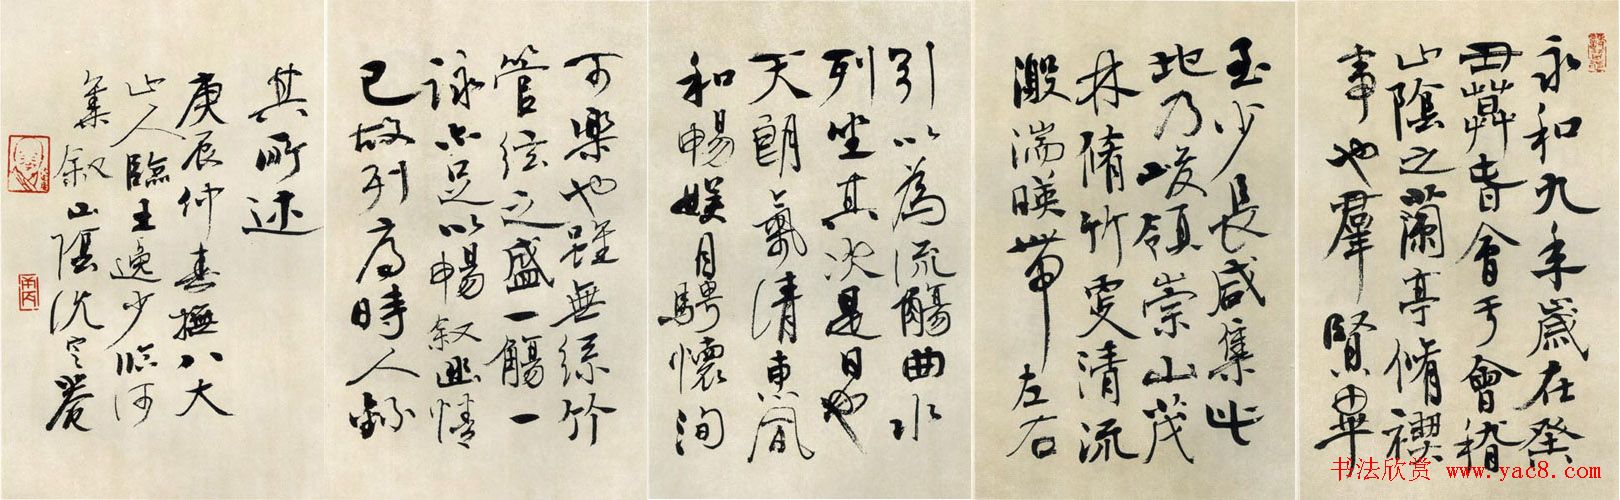 永和九年歲在癸
丑暮春會于會稽
山陰之蘭亭脩禊
事也羣賢畢
至少長咸集此
地乃峻領崇山茂
林脩竹更清流
激湍暎帶左右
引以為流觴曲水
列坐其次是日也
天朗氣清惠風
和暢娛目騁懷洵
可樂也雖無絲竹
管弦之盛一觴一
詠亦足以暢叙幽情
已故列序時人錄
其所述
庚辰仲春撫八大
山人臨王逸少臨河
集叙山陰沈定庵
书法欣赏 www.yac8.com